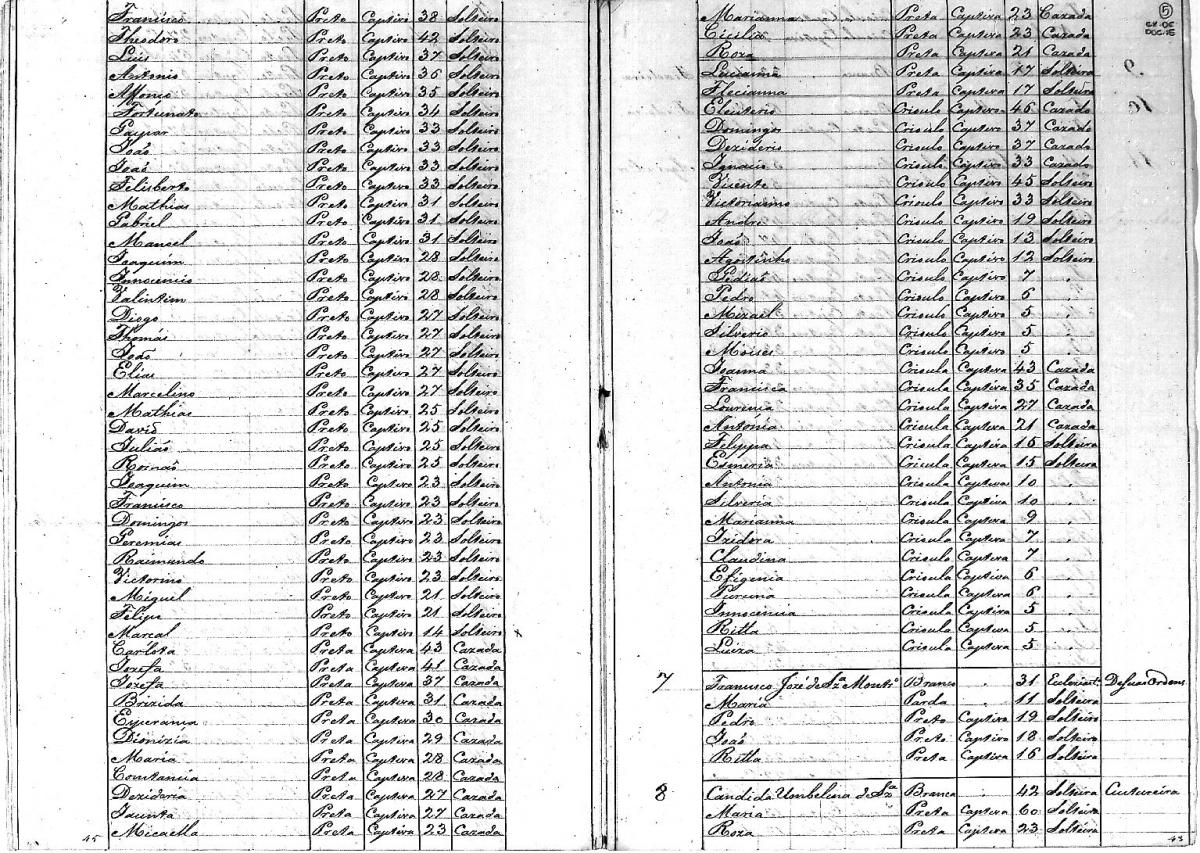 Francisco Preto Captivo 38 Solteiro
Theodoro Preto Captivo 42 Solteiro
Luis Preto Captivo 37 Solteiro
Antonio Preto Captivo 36 Solteiro
Affonso Preto Captivo 35 Solteiro
Fortunato Preto Captivo 34 Solteiro
Gaspar Preto Captivo 33 Solteiro
João Preto Captivo 33 Solteiro
João Preto Captivo 33 Solteiro
Felisberto Preto Captivo 33 Solteiro
Mathias Preto Captivo 31 Solteiro
Gabriel Preto Captivo 31 Solteiro
Manoel Preto Captivo 31 Solteiro
Joaquim Preto Captivo 28 Solteiro
Innocencio Preto Captivo 28 Solteiro
Valintim Preto Captivo 28 Solteiro
Diogo Preto Captivo 27 Solteiro
Thomás Preto Captivo 27 Solteiro
João Preto Captivo 27 Solteiro
Elias Preto Captivo 27 Solteiro
Marcelino Preto Captivo 27 Solteiro
Mathias Preto Captivo 25 Solteiro
David Preto Captivo 25 Solteiro
Julião Preto Captivo 25 Solteiro
Romão Preto Captivo 25 Solteiro
Joaquim Preto Captivo 23 Solteiro
Francisco Preto Captivo 23 Solteiro
Domingos Preto Captivo 23 Solteiro
Jeremias Preto Captivo 23 Solteiro
Raimundo Preto Captivo 23 Solteiro
Victorino Preto Captivo 23 Solteiro
Miguel Preto Captivo 21 Solteiro
Felipe Preto Captivo 21 Solteiro
Marcal Preto Captivo 14 Solteiro x
Carlota Preta Captiva 43 Cazada
Jozefa Preta Captiva 41 Cazada
Jozefa Preta Captiva 37 Cazada
Brizida Preta Captiva 31 Cazada
Esperansa Preta Captiva 30 Cazada
Dionizia Preta Captiva 29 Cazada
Maria Preta Captiva 28 Cazada
Constancia Preta Captiva 28 Cazada
Dezideria Preta Captiva 27 Cazada
Jacinta Preta Captiva 27 Cazada
Micaella Preta Captiva 23 Cazada
45
5
CX-05
DOC-15
Marianna Preta Captiva 23 Cazada
Cicilia Preta Captiva 23 Cazada
Roza Preta Captiva 21 Cazada
Lucianna Preta Captiva 17 Solteira
Flecianna Preta Captiva 17 Solteira
Eleuterio Crioulo Captivo 46 Cazado
Domingos Crioulo Captivo 37 Cazado
Deziderio Crioulo Captivo 37 Cazado
Ignacio Crioulo Captivo 33 Cazado
Vicente Crioulo Captivo 45 Solteiro
Victorianno Crioulo Captivo 33 Solteiro
Andre Crioulo Captivo 19 Solteiro
João Crioulo Captivo 13 Solteiro
Agostinho Crioulo Captivo 12 Solteiro
Crioulo Captivo 7 .
Pedro Crioulo Captivo 6 .
Mizael Crioulo Captivo 5 .
Silverio Crioulo Captivo 5 .
Moises Crioulo Captivo 5 .
Joanna Crioula Captiva 43 Cazada
Francisca Crioula Captiva 35 Cazada
Lourença Crioula Captiva 27 Cazada
Antónia Crioula Captiva 21 Cazada
Filippa Crioula Captiva 16 Solteira
Esmeria Crioula Captiva 15 Solteira
Antonia Crioula Captiva 10 .
Silveria Crioula Captiva 10 .
Marianna Crioula Captiva 9 .
Izidora Crioula Captiva 7 .
Claudina Crioula Captiva 7 .
Efigenia Crioula Captiva 6 .
Crioula Captiva 6 .
Innocencia Crioula Captiva 5 .
Ritta Crioula Captiva 5 .
Luiza Crioula Captiva 5 .
7 Francisco José de Sza Montro Branco . 31 Eccleziast. De suas Ordens
Maria Parda . 11 Solteira
Pedro Preto Captivo 19 Solteiro
João Preto Captivo 18 Solteiro
Ritta Preta Captiva 16 Solteira
8 Candida Umbelina de Sza Branca . 42 Solteira Custureira
Maria Preta Captiva 60 Solteira
Roza Preta Captiva 23 Solteira
43